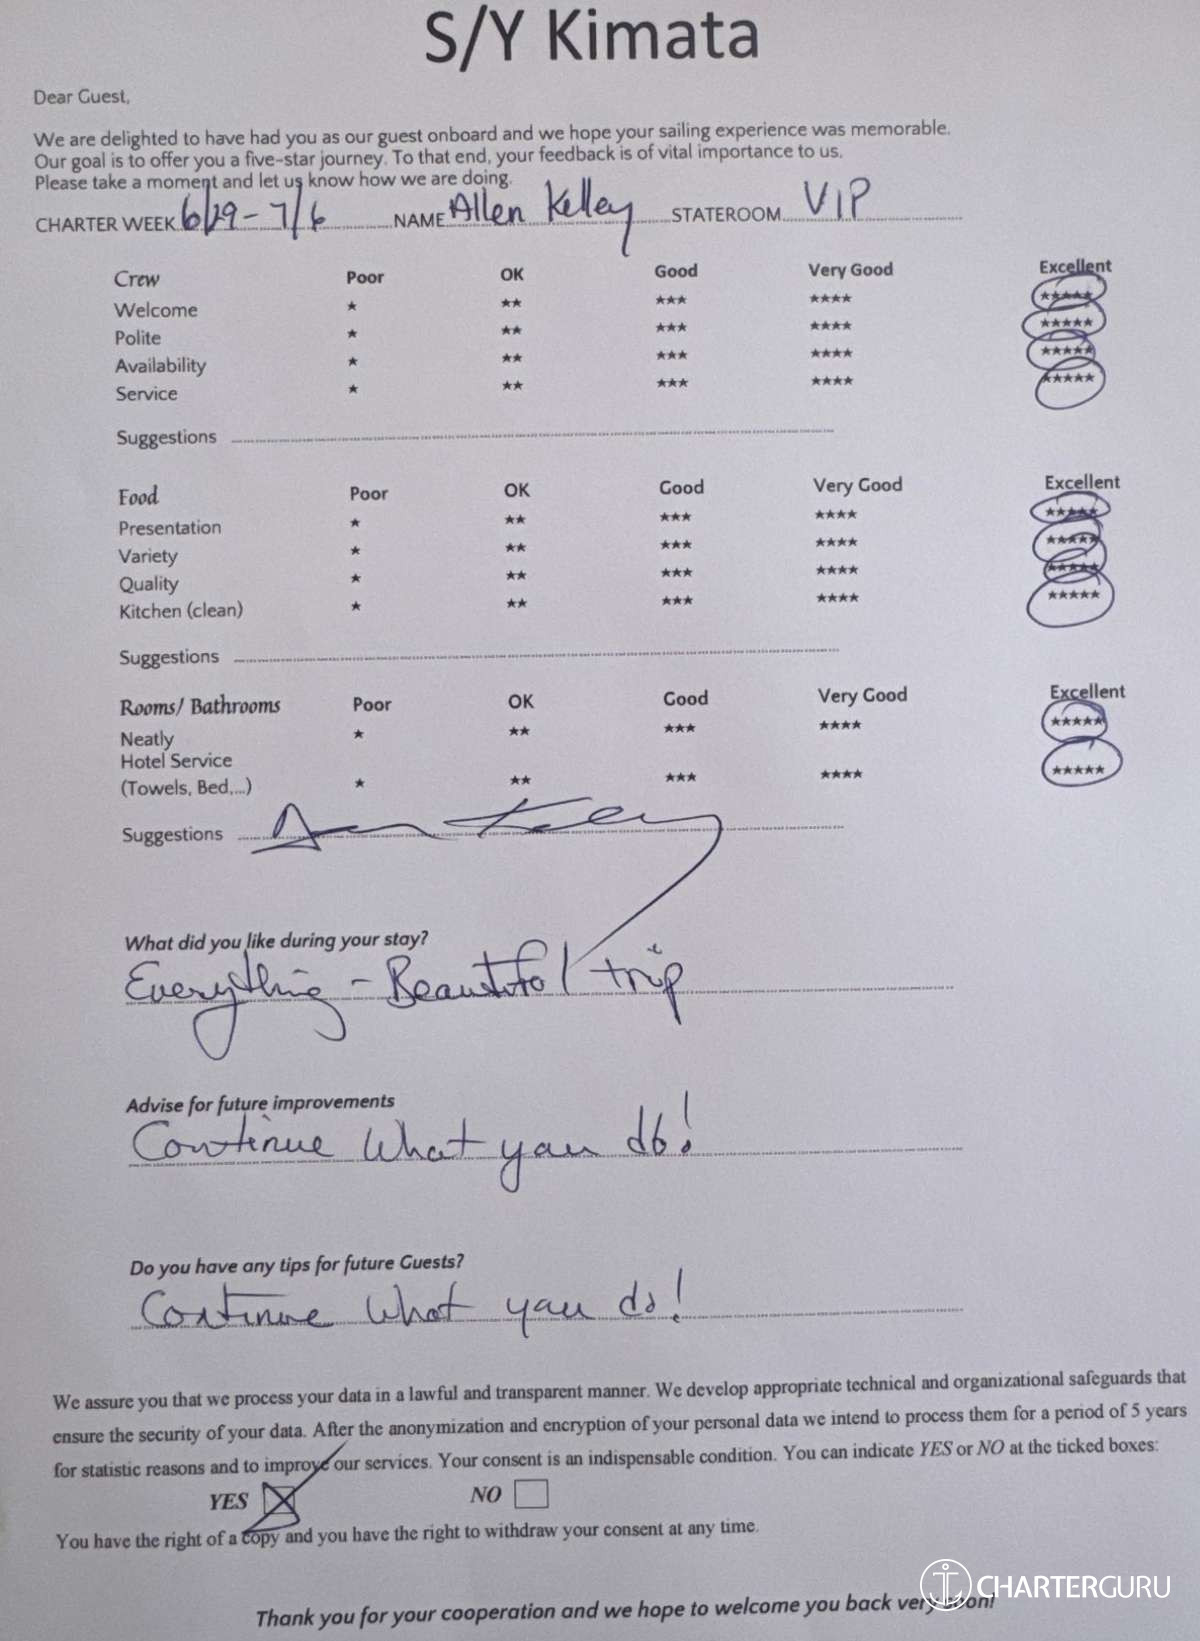 S/Y Kimata
Dear Guest,
We are delighted to have had you as our guest onboard and we hope your sailing experience was memorable.
Our goal is to offer you a five-star journey. To that end, your feedback is of vital importance to us.
Please take a moment and let us know how we are doing.
CHARTER WEEK 6/29 - 7/6 NAME Allen Kelley STATEROOM VIP
Crew Poor OK Good Very Good Excellent
Welcome ★ ★★ ★★★ ★★★★ ★★★★★
Polite ★ ★★ ★★★ ★★★★ ★★★★★
Availability ★ ★★ ★★★ ★★★★ ★★★★★
Service ★ ★★ ★★★ ★★★★ ★★★★★
Suggestions
Food Poor OK Good Very Good Excellent
Presentation ★ ★★ ★★★ ★★★★ ★★★★★
Variety ★ ★★ ★★★ ★★★★ ★★★★★
Quality ★ ★★ ★★★ ★★★★ ★★★★★
Kitchen (clean) ★ ★★ ★★★ ★★★★ ★★★★★
Suggestions
Rooms/ Bathrooms Poor OK Good Very Good Excellent
Neatly ★ ★★ ★★★ ★★★★ ★★★★★
Hotel Service
(Towels, Bed,...) ★ ★★ ★★★ ★★★★ ★★★★★
Suggestions
What did you like during your stay?
Everything - Beautiful trip
Advise for future improvements
Continue What you do!
Do you have any tips for future Guests?
Continue What you do!
We assure you that we process your data in a lawful and transparent manner. We develop appropriate technical and organizational safeguards that
ensure the security of your data. After the anonymization and encryption of your personal data we intend to process them for a period of 5 years
for statistic reasons and to improve our services. Your consent is an indispensable condition. You can indicate YES or NO at the ticked boxes:
YES NO
You have the right of a copy and you have the right to withdraw your consent at any time.
CHARTERGURU
Thank you for your cooperation and we hope to welcome you back very soon!